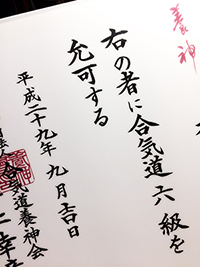 養神
右の者に合気道六級を
允可する
平成二十九年九月吉日
合気道養神会